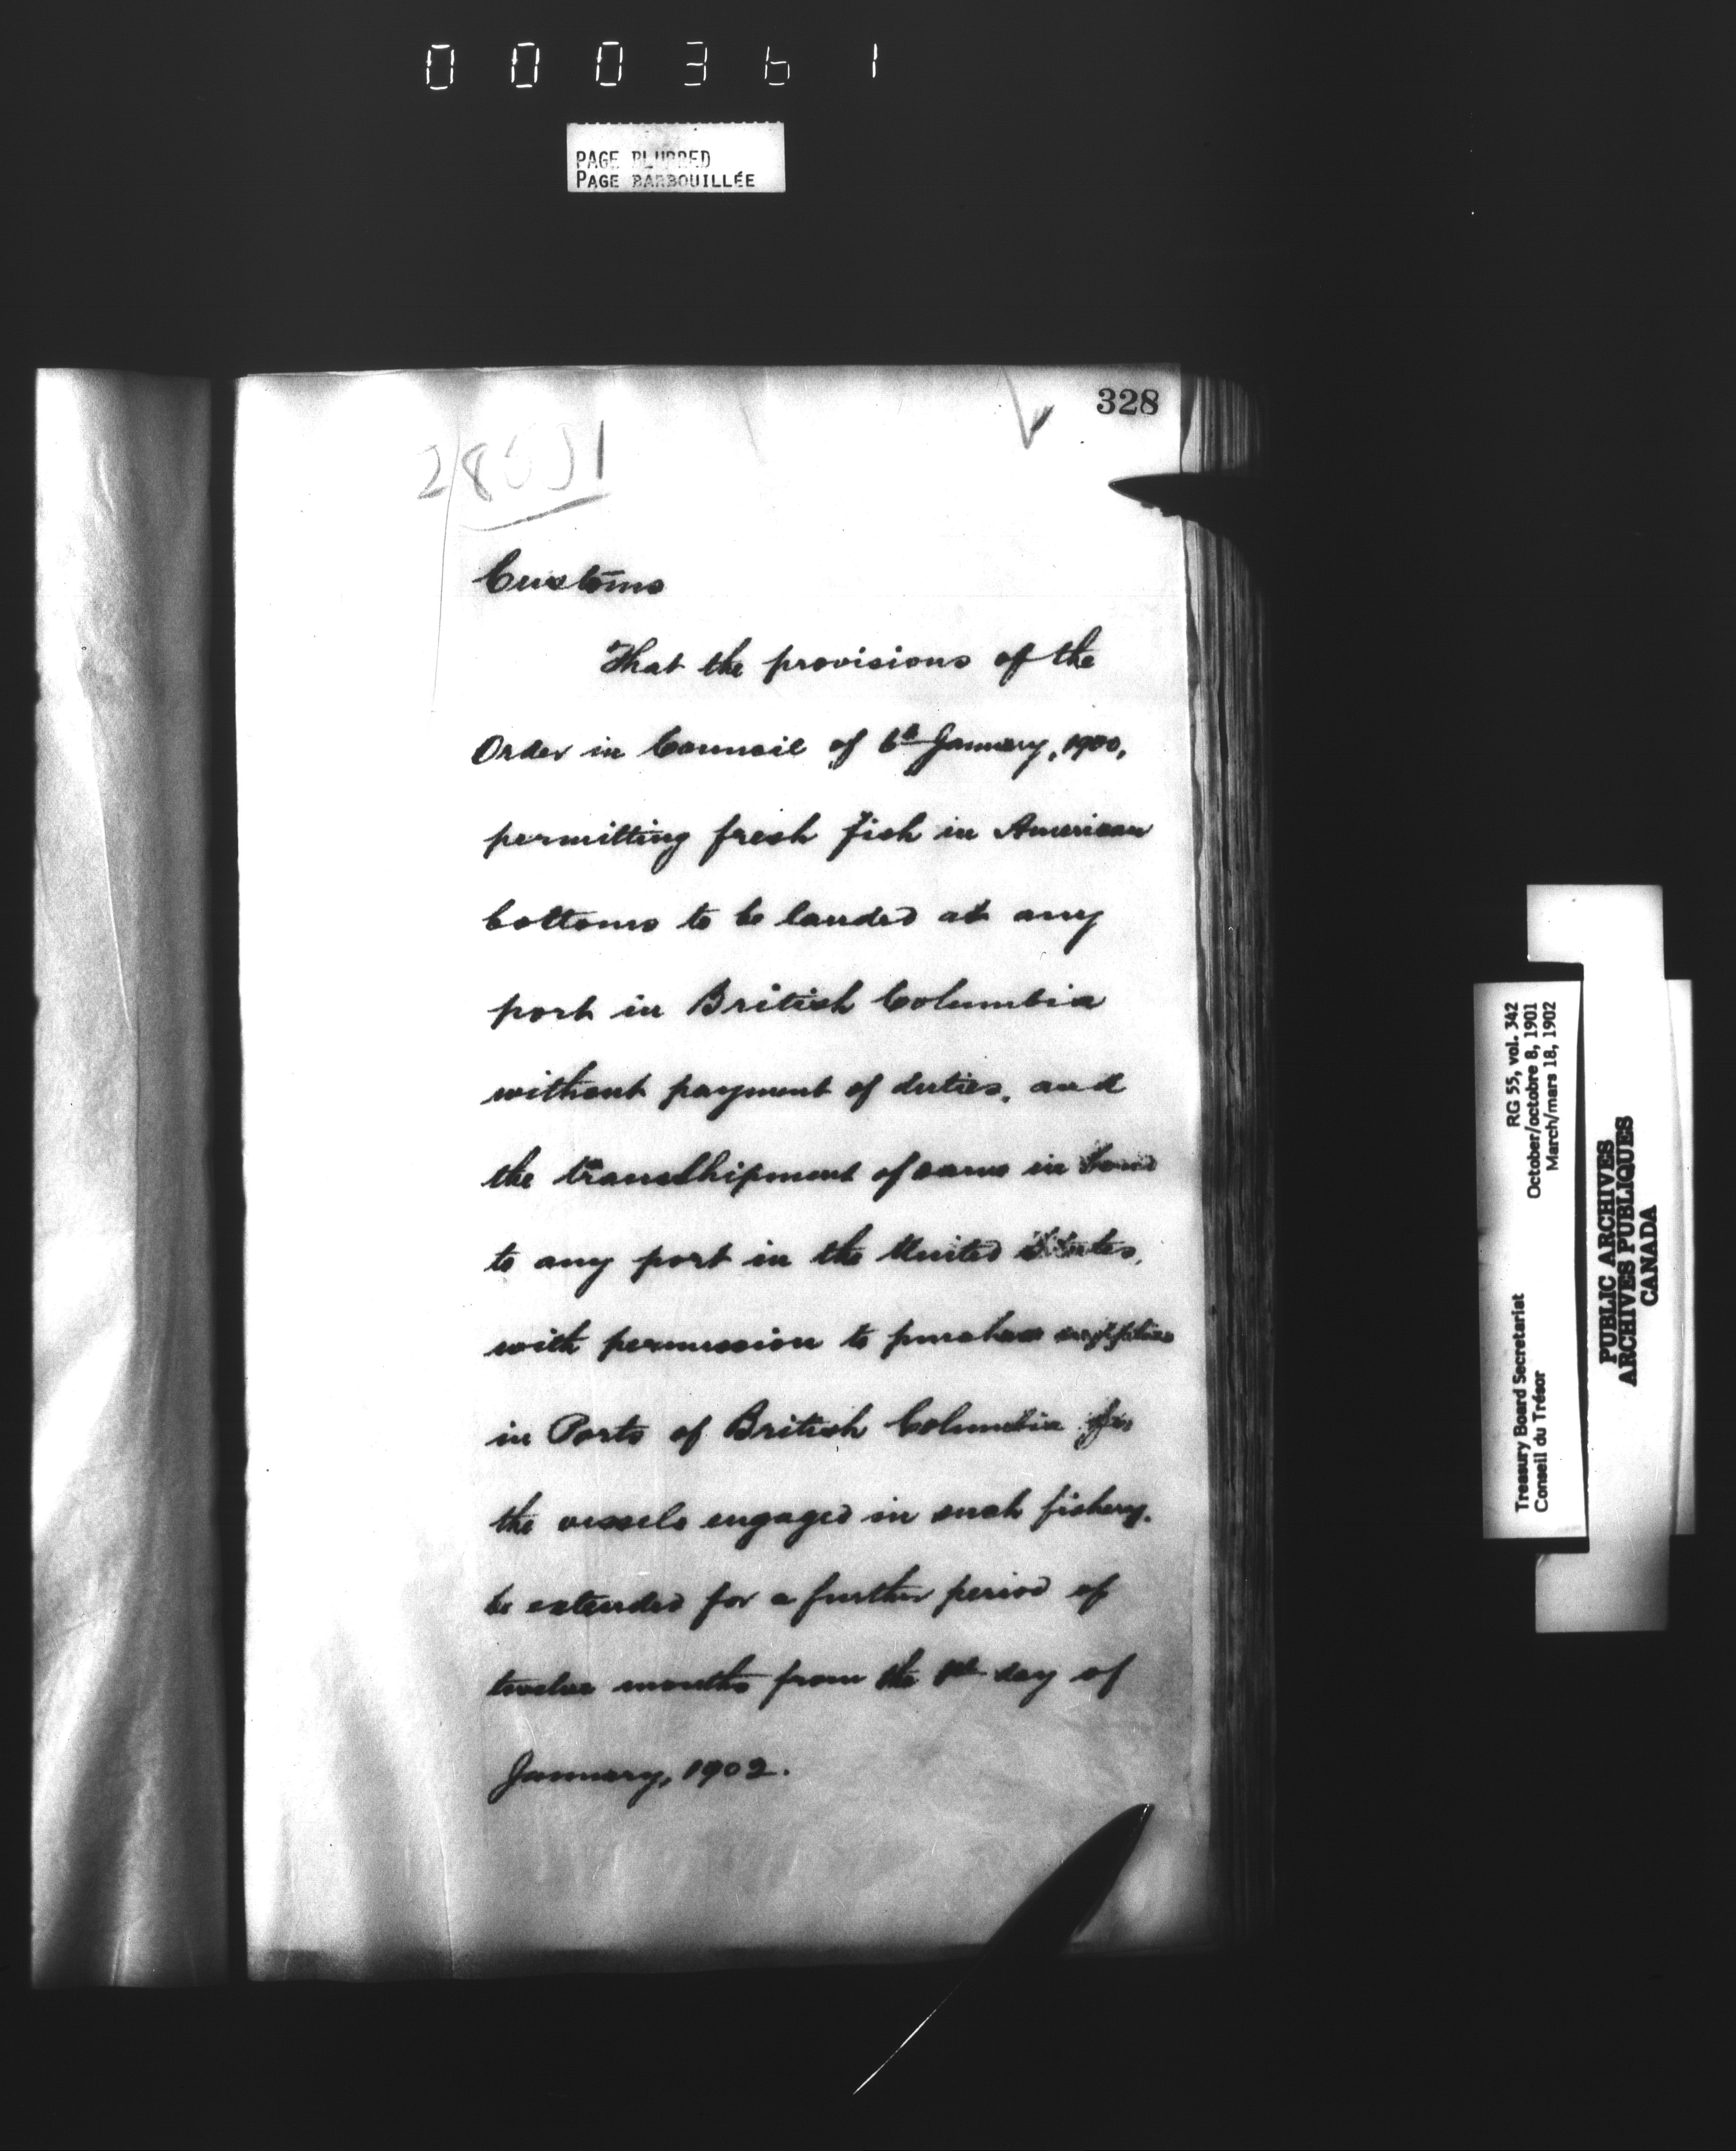 000361
PAGE BLURRED
PAGE BARBOUILLÉE
328
Customs
That the provisions of the
Order in Council of 6th January, 1900,
permitting fresh fish in American
bottoms to be landed at any
port in British Columbia
without payment of duties, and
the transhipment of same in bond
to any port in the United States,
with permission to purchase supplies
in Ports of British Columbia for
the vessels engaged in such fishery,
be extended for a further period of
twelve months from the 1st day of
January, 1902.
Treasury Board Secretariat
Conseil du Trésor
RG 55, vol. 342
October/octobre 8, 1901
March/mars 18, 1902
PUBLIC ARCHIVES
ARCHIVES PUBLIQUES
CANADA